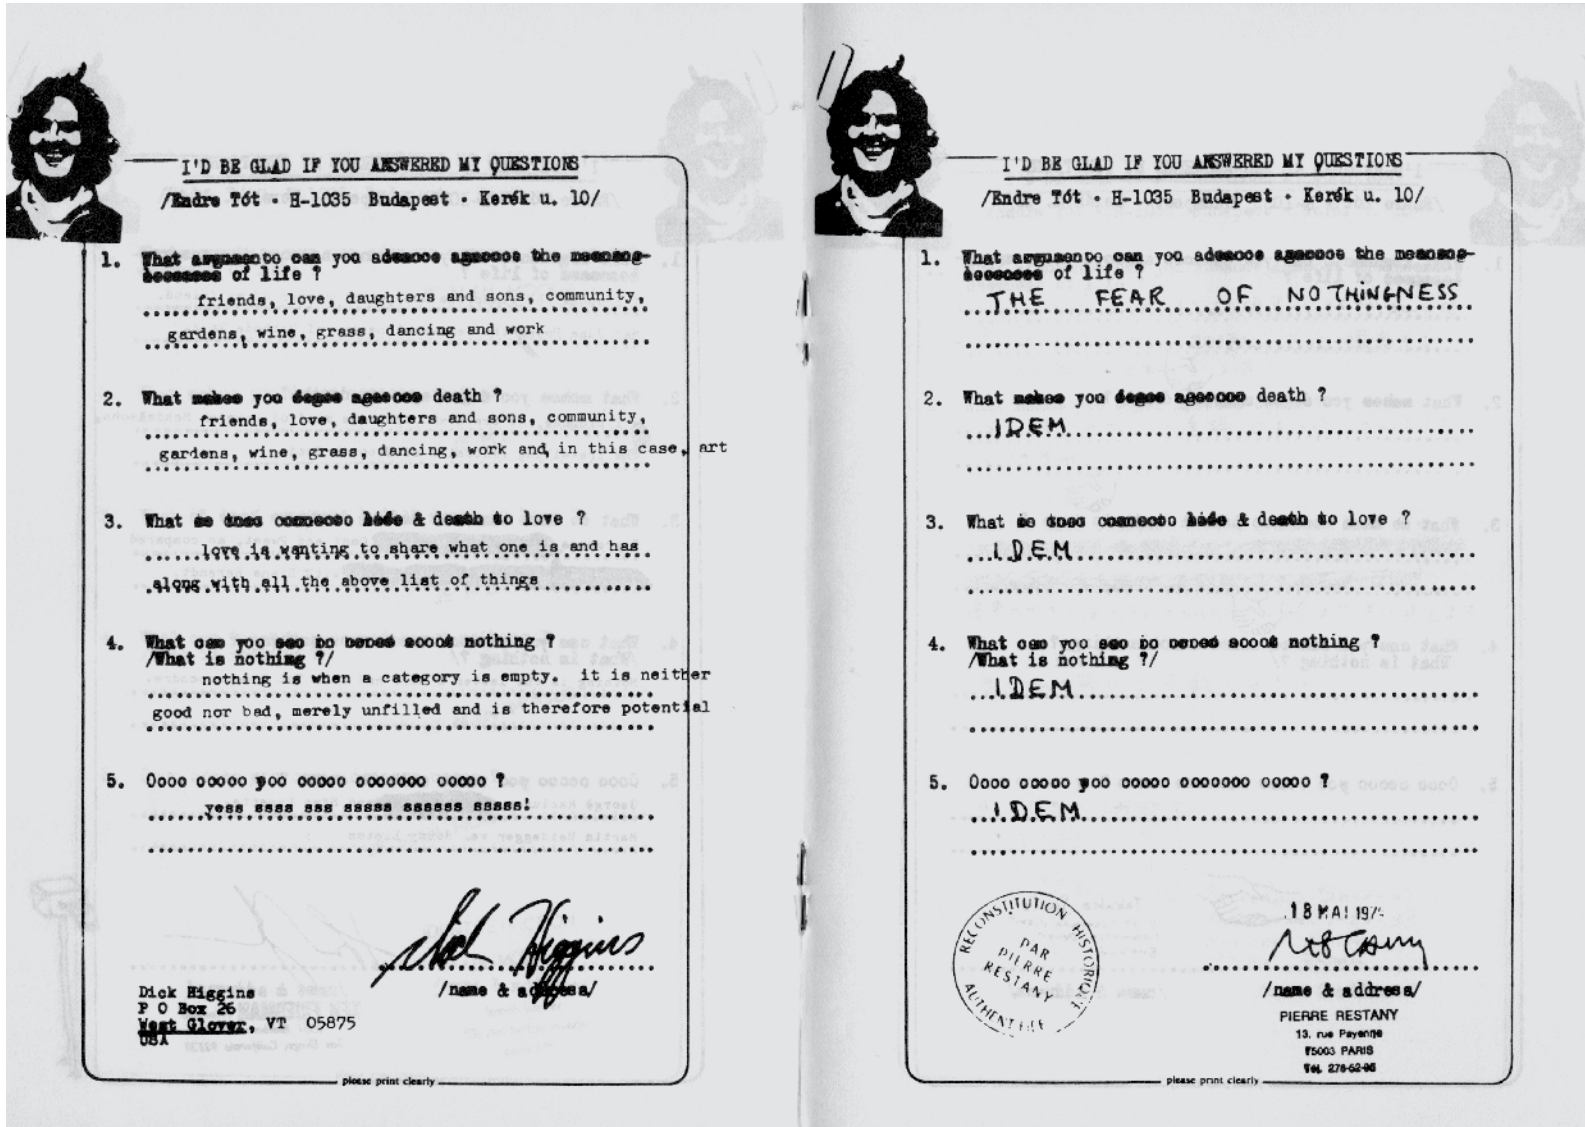 I'D BE GLAD IF YOU ANSWERED MY QUESTIONS
/Endre Tót · H-1035 Budapest · Kerék u. 10/
1. What can you the
of life ?
friends, love, daughters and sons, community,
gardens, wine, grass, dancing and work
2. What you death ?
friends, love, daughters and sons, community,
gardens, wine, grass, dancing, work and in this case, art
3. What & death to love ?
love is wanting to share what one is and has
along with all the above list of things
4. What yoo nothing ?
/What is nothing ?/
nothing is when a category is empty. it is neither
good nor bad, merely unfilled and is therefore potential
5. Oooo ooooo yoo ooooo ooooooo ooooo ?
yess ssss sss sssss ssssss sssss!
Dick Higgins
/name & address/
Dick Higgins
P O Box 26
West Glover, VT 05875
USA
please print clearly
I'D BE GLAD IF YOU ANSWERED MY QUESTIONS
/Endre Tót · H-1035 Budapest · Kerék u. 10/
1. What can you the
of life ?
THE FEAR OF NOTHINGNESS
2. What you death ?
IDEM
3. What & death to love ?
IDEM
4. What yoo nothing ?
/What is nothing ?/
IDEM
5. Oooo ooooo yoo ooooo ooooooo ooooo ?
IDEM
RECONSTITUTION HISTORIQUE
PAR
PIERRE
RESTANY
AUTHENTIFIÉE
18 MAI
Restany
/name & address/
PIERRE RESTANY
13, rue Payenne
75003 PARIS
Tel. 278-52-
please print clearly